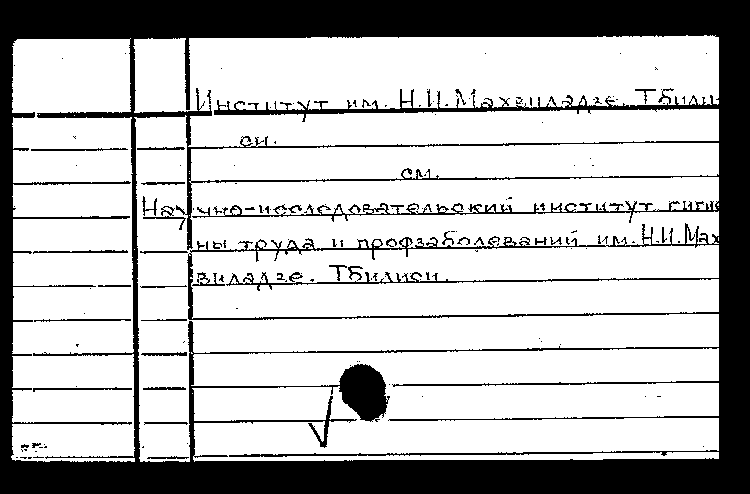 Институт им. Н.И.Махвиладзе. Тбили-
си.
см.
Научно-исследовательский институт гигие
ны труда и профзаболеваний им.Н.И.Мах
виладзе. Тбилиси.